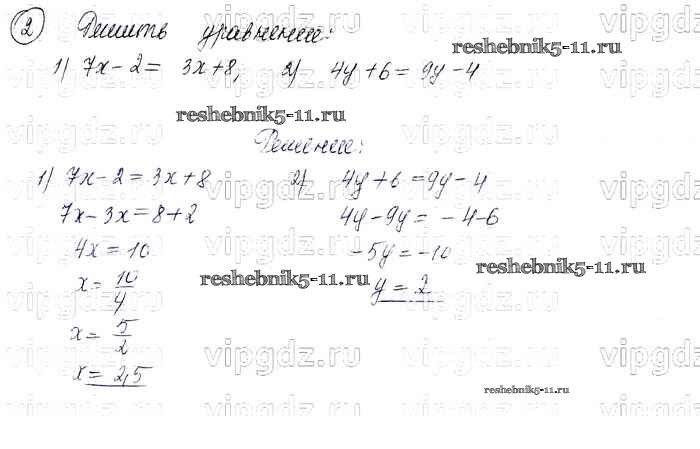 ② Решить уравнение:
1) 7x - 2 = 3x + 8, 2) 4y + 6 = 9y - 4
Решение:
1) 7x - 2 = 3x + 8 2) 4y + 6 = 9y - 4
7x - 3x = 8 + 2 4y - 9y = - 4 - 6
4x = 10 - 5y = - 10
x = 10/4 y = 2
x = 5/2
x = 2,5
reshebnik5-11.ru
reshebnik5-11.ru
reshebnik5-11.ru
reshebnik5-11.ru
reshebnik5-11.ru
vipgdz.ru vipgdz.ru vipgdz.ru
vipgdz.ru vipgdz.ru vipgdz.ru
vipgdz.ru vipgdz.ru vipgdz.ru
vipgdz.ru vipgdz.ru vipgdz.ru
vipgdz.ru vipgdz.ru vipgdz.ru